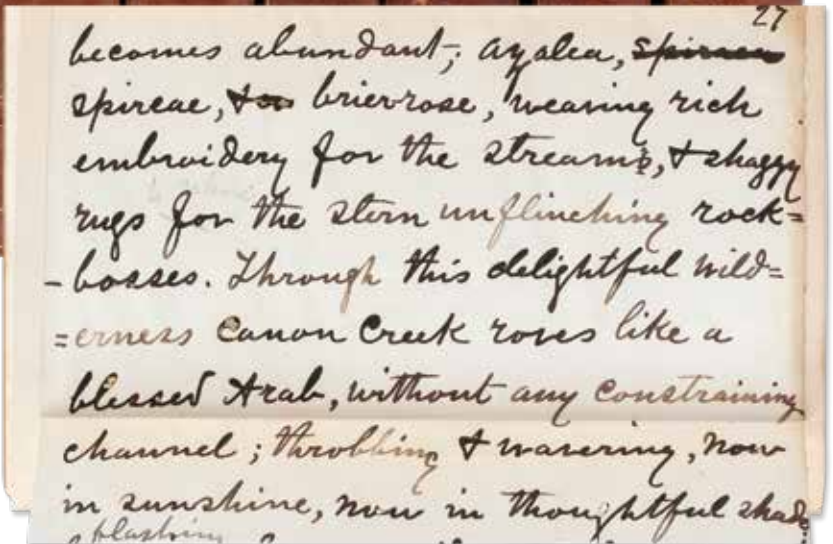 27
becomes abundant; azalea, spiraea
spireae, & brier-rose, weaving rich
embroidery for the streams, & shaggy
rugs for the stern unflinching rock=
-bosses. Through this delightful wild=
=erness Canon Creek roves like a
blessed Arab, without any constraining
channel; throbbing & wavering, now
in sunshine, now in thoughtful shad
plashing